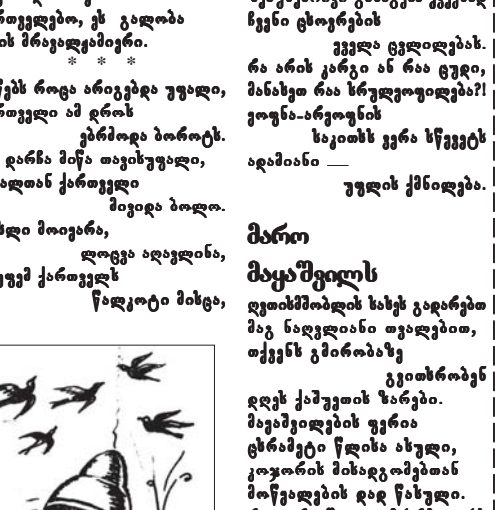 ართველებო, ეს გალობა
ის მრავალჟამიერი.
* * *
ნებს როცა არიგებდა უფალი,
ართველი ამ დროს
ებრძოდა ბოროტს.
დარჩა მიწა თავისუფალი,
ალთან ქართველი
მივიდა ბოლო.
სლი მოიყარა,
ლოცვა აღავლინა,
ქართველს
წალკოტი მისცა,
ჩვენი ცხოვრების
ყველა ცვლილებას.
რა არის კარგი ან რაა ცუდი,
მანასეთ რაა სრულყოფილება?!
ყოფნა-არყოფნის
საკითხს ვერა სწყვეტს
ადამიანი —
უფლის ქმნილება.
მარო
მაყაშვილს
ღვთისმშობლის სახეს გადარებთ
მაგ ნაღვლიანი თვალებით,
თქვენს გმირობაზე
გვითხრობენ
დღეს ქაშუეთის ზარები.
მაყაშვილების ფერია
ცხრამეტი წლისა ასული,
კოჯორის მისადგომებთან
მოწყალების დად წასული.